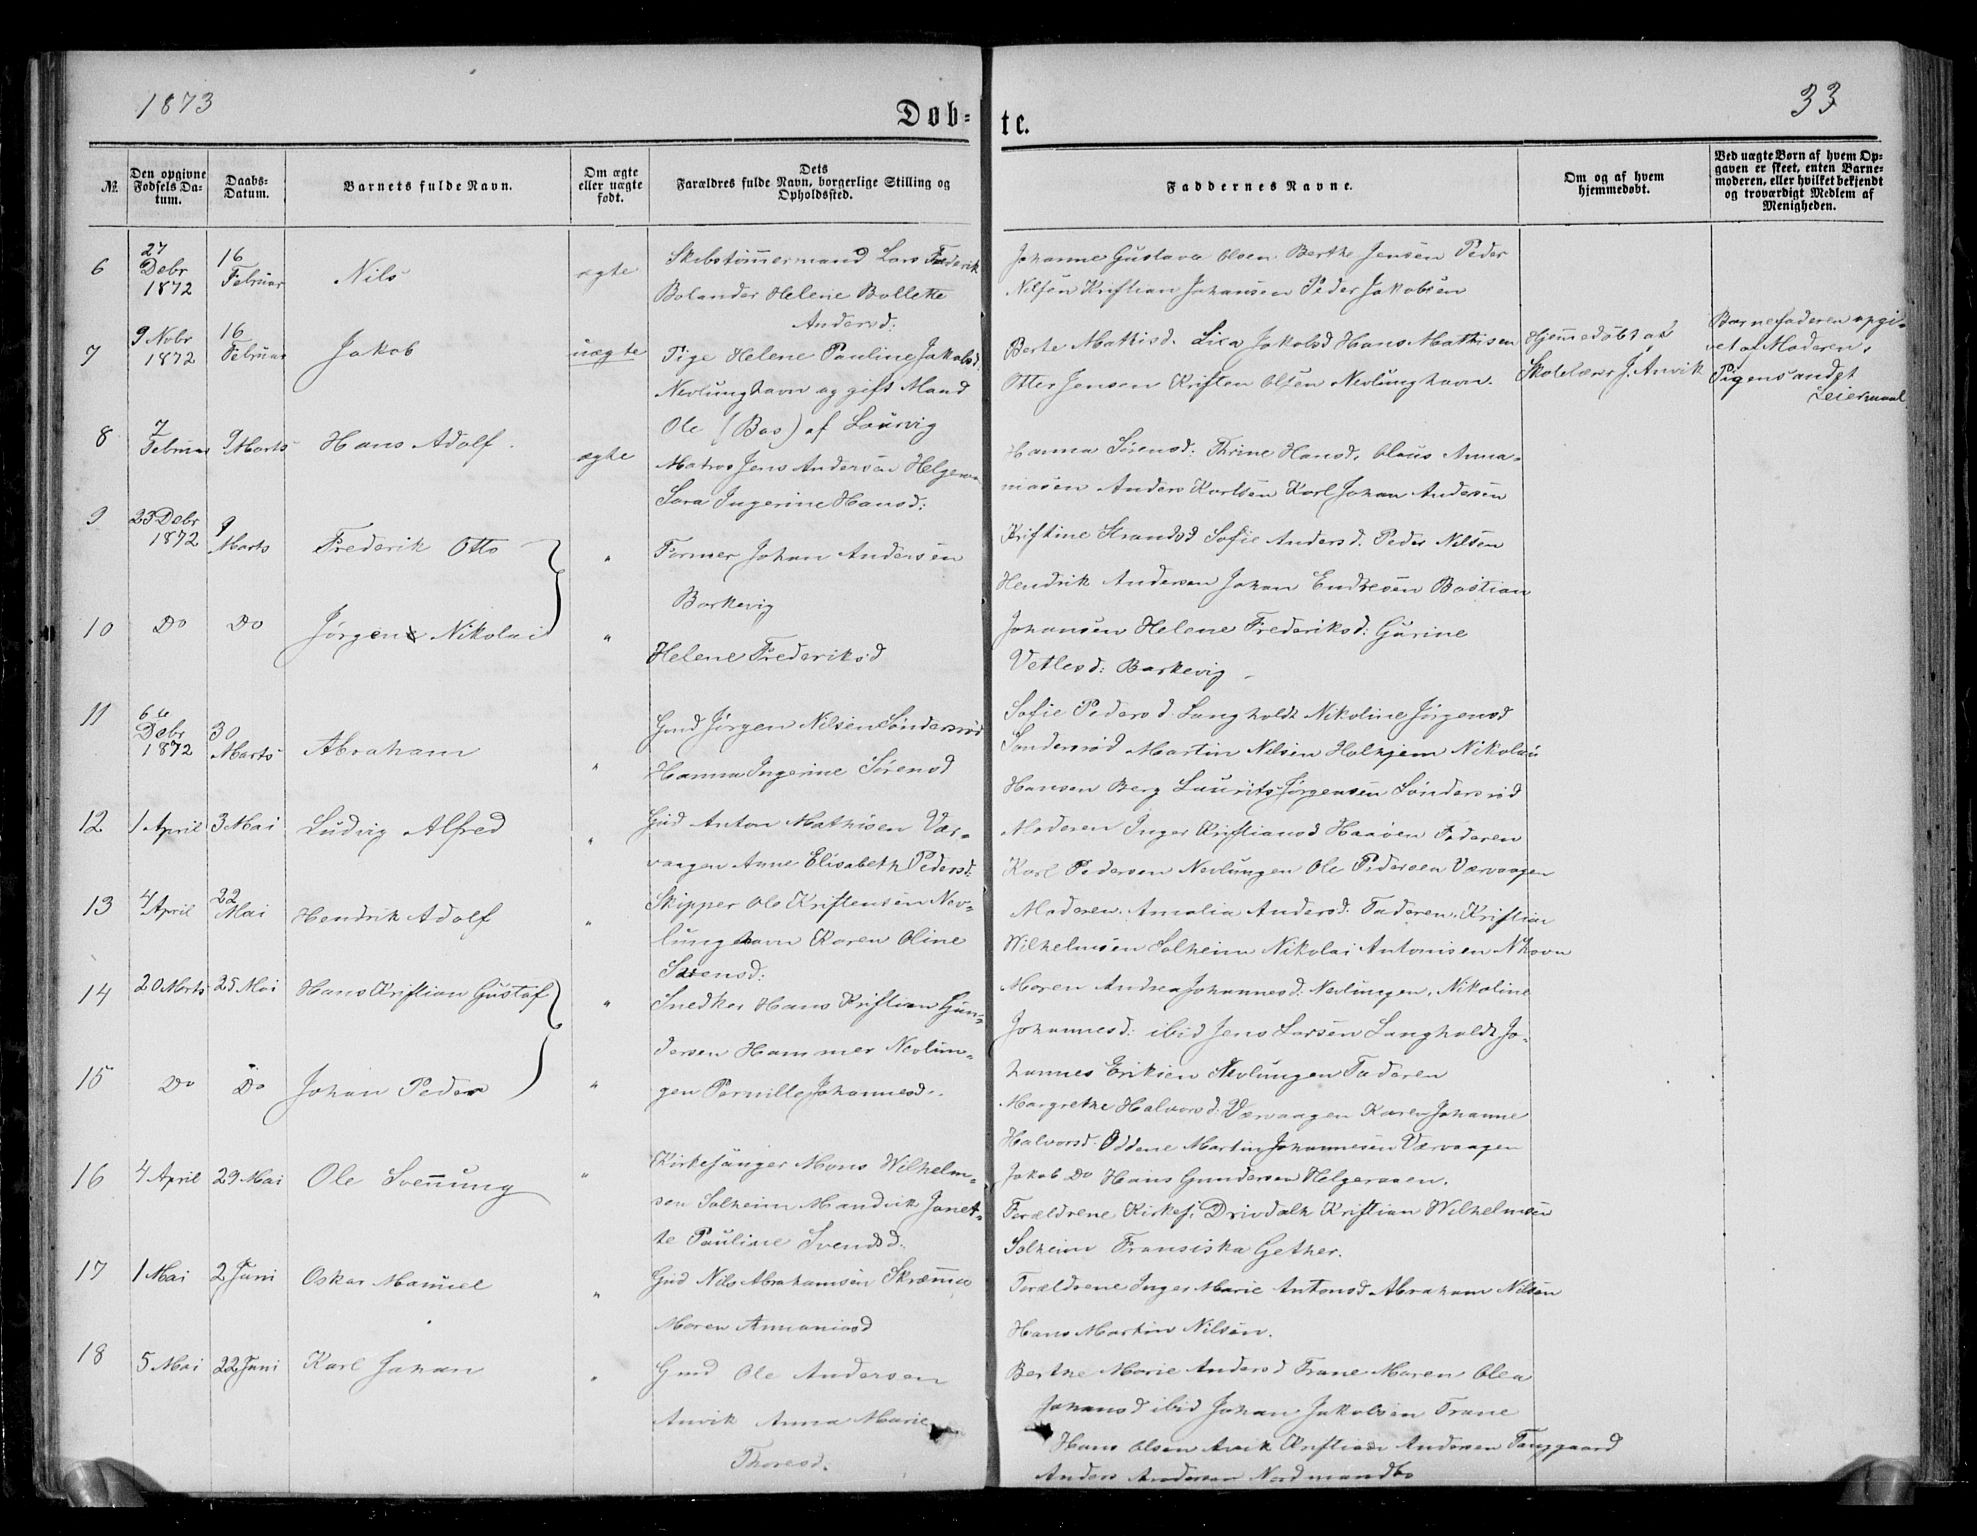 1873
33
Døb-
te.
№
Den opgivne Fødsels Da-tum.
Daabs-Datum.
Barnets fulde Navn.
Om ægte eller uægte født.
Dets Forældres fulde Navn, borgerlige Stilling og Opholdssted.
Faddernes Navne.
Om og af hvem hjemmedøbt.
Ved uægte Børn af hvem Op-gaven er skeet, enten Barne-moderen, eller hvilket bekjendt og troværdigt Medlem af Menigheden.
6
27 Debr 1872
16 Februar
Nils
ægte
Skibstømmermand Lars Frederik
Bolander Helene Bollette
Andersd:
Johanne Gustava Olsen Berthe Jensen Peder
Nilsen Kristian Johansen Peder Jakobsen
7
9 Nobr 1872
16 Februar
Jakob
uægte
Pige Helene Pauline Jakobsd
Nevlunghavn og gift Mand
Ole (Bas) af Laurvig
Berte Mathisd. Lisa Jakobsd Hans Mathisen
Otter Jensen Kristen Olsen Nevlunghavn.
Hjemmedøbt af
Skolelærer J. Anvik
Barnefaderen opgi-
vet af Moderen.
Pigens andet
Leiermaal.
8
7 Februar
9 Marts
Hans Adolf.
ægte
Matros Jens Andersen Helgeroa
Sara Ingerine Hansd:
Hanna Sørensd: Thrine Hansd. Olaus Anna-
niasen Anders Karlsen Karl Johan Andersen
9
23 Debr 1872
9 Marts
Frederik Otto
"
Former Johan Andersen
Barkevig
Kristine Strandsd Sofie Andersd. Peder Nilsen
Hendrik Andersen Johan Endresen Bastian
10
Do
Do
Jørgen Nikolai
"
Helene Frederiksd
Johansen Helene Frederiksd: Gurine
Vetlesd: Barkevig
11
6te Debr 1872
30 Marts
Abraham
"
Gmd Jørgen Nilsen Søndersrød
Hanna Ingerine Sørensd
Sofie Pedersd. Langholdt Nikoline Jørgensd
Søndersrød Martin Nilsen Holhjem Nikolai
Hansen Berg Laurits Jørgensen Søndersrød
12
1 April
3 Mai
Ludvig Alfred
"
Gmd Anton Mathisen Vær-
vaagen Anne Elisabeth Pedersd:
Moderen Inger Kristiansd Haaøen Faderen
Karl Pedersen Nevlungen Ole Pedersen Værvaagen
13
4 April
22 Mai
Hendrik Adolf
"
Skipper Ole Kristensen Nev-
lunghavn Karen Oline
Sørensd:
Moderen. Amalia Andersd. Faderen. Kristian
Wilhelmsen Solheim Nikolai Antonisen Nhavn
14
20 Marts
25 Mai
Hans Kristian Gustaf
"
Snedker Hans Kristian Gun-
dersen Hammer Nevlun-
Maren Andrea Johannesd. Nevlungen. Nikoline
Johannesd: ibid Jens Larsen Langholdt Jo-
15
Do
Do
Johan Peder
"
gen Pernille Johannesd.
hannes Eriksen Nevlungen Faderen
Margrethe Halvorsd. Værvaagen Karen Johanne
Halvorsd. Oddene Martin Johannesen Værvaagen
Jakob Do Hans Gundersen Helgeroaen.
16
4 April
29 Mai
Ole Svennung
"
Kirkesanger Mons Wilhelm-
sen Solheim Mandvik Janet-
te Pauline Svendsd.
Forældrene Kirkes. Drivdahl Kristian Wilhelmsen
Solheim Fransiska Gether.
17
1 Mai
2 Juni
Oskar Manuel
"
Gmd Nils Abrahamsen Skrømmo
Maren Annaniasd
Forældrene Inger Marie Antonsd Abraham Nilsen
Hans Martin Nilsen.
18
5 Mai
22 Juni
Karl Johan
"
Gmd Ole Andersen
Anvik Anna Marie
Thoresd.
Berthe Marie Andersd Frane Maren Olea
Johansd ibid Johan Jakobsen Frane
Hans Olsen Avik Kristian Andersen Fanggaard
Anders Andersen Nordmandbo